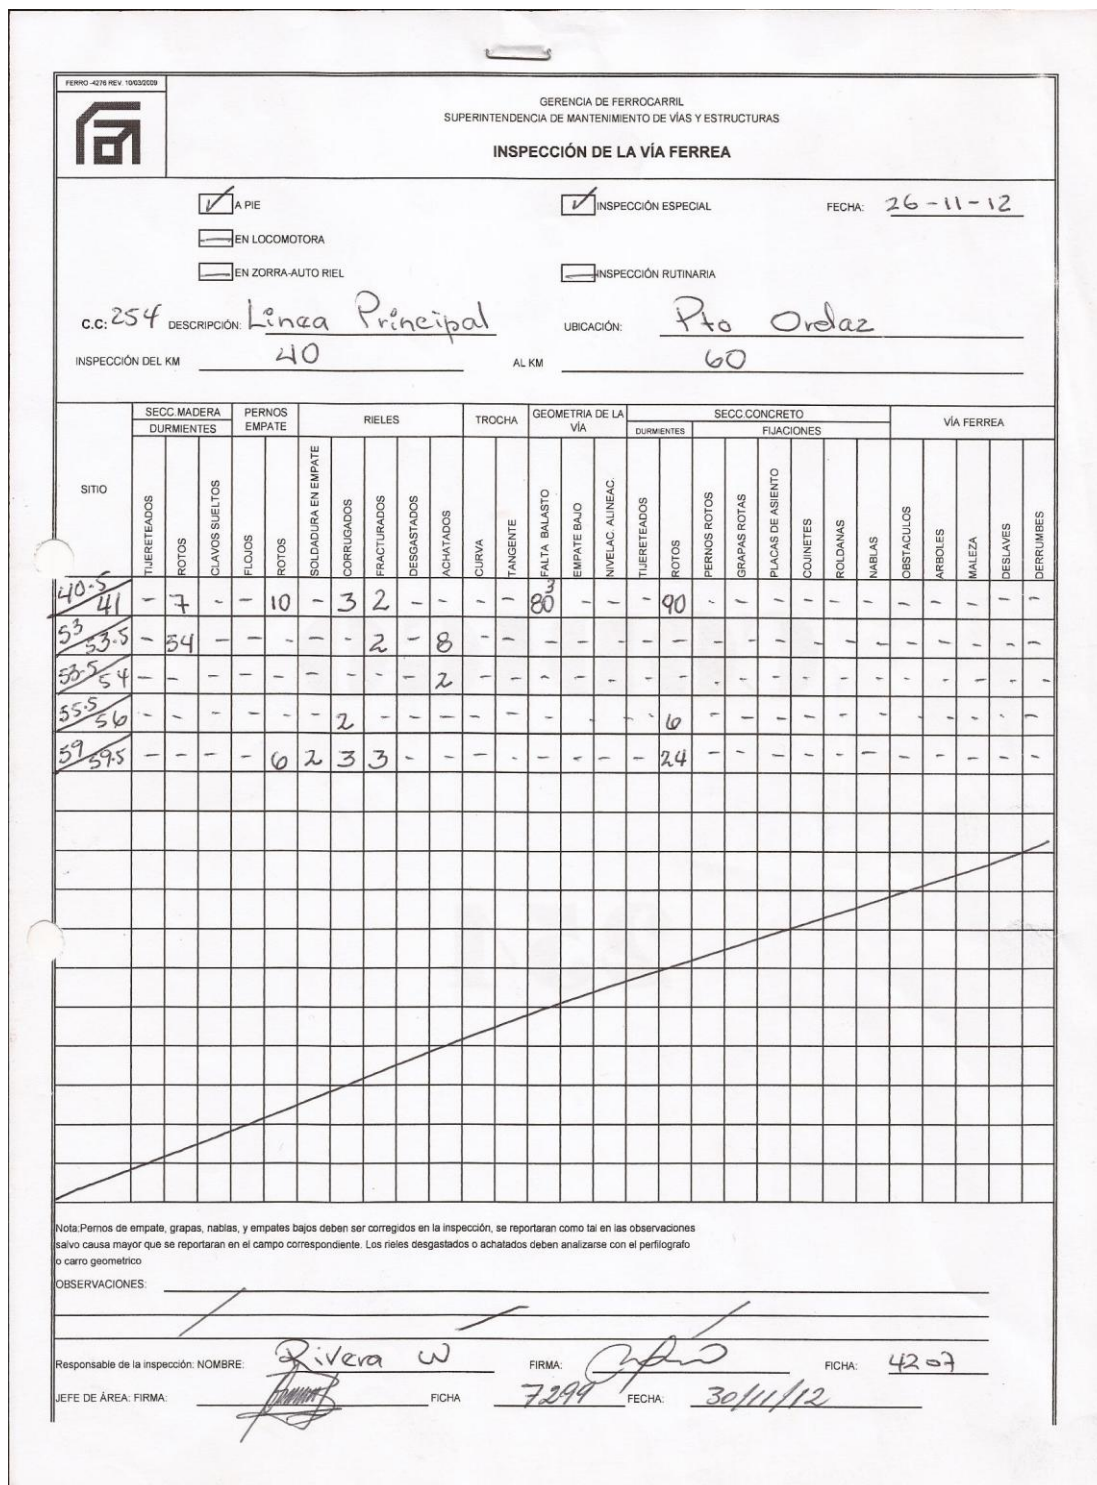 FERRO -4276 REV. 10/03/2009
GERENCIA DE FERROCARRIL
SUPERINTENDENCIA DE MANTENIMIENTO DE VÍAS Y ESTRUCTURAS
INSPECCIÓN DE LA VÍA FERREA
A PIE
INSPECCIÓN ESPECIAL
FECHA: 26-11-12
EN LOCOMOTORA
EN ZORRA-AUTO RIEL
INSPECCIÓN RUTINARIA
C.C: 254 DESCRIPCIÓN: Linea Principal UBICACIÓN: Pto Ordaz
INSPECCIÓN DEL KM 40 AL KM 60
SITIO
SECC.MADERA PERNOS EMPATE RIELES TROCHA GEOMETRIA DE LA VÍA SECC.CONCRETO VÍA FERREA
DURMIENTES DURMIENTES FIJACIONES
TIJERETEADOS ROTOS CLAVOS SUELTOS FLOJOS ROTOS SOLDADURA EN EMPATE CORRUGADOS FRACTURADOS DESGASTADOS ACHATADOS CURVA TANGENTE FALTA BALASTO EMPATE BAJO NIVELAC. ALINEAC. TIJERETEADOS ROTOS PERNOS ROTOS GRAPAS ROTAS PLACAS DE ASIENTO COJINETES ROLDANAS NABLAS OBSTACULOS ARBOLES MALEZA DESLAVES DERRUMBES
40.5/41 - 7 - - 10 - 3 2 - - - - 80³ - - - 90 - - - - - - - - - - -
53/53.5 - 54 - - - - - 2 - 8 - - - - - - - - - - - - - - - - - -
53.5/54 - - - - - - - - - 2 - - - - - - - - - - - - - - - - - -
55.5/56 - - - - - - 2 - - - - - - - - - 6 - - - - - - - - - - -
59/59.5 - - - - 6 2 3 3 - - - - - - - - 24 - - - - - - - - - - -
Nota:Pernos de empate, grapas, nablas, y empates bajos deben ser corregidos en la inspección, se reportaran como tal en las observaciones
salvo causa mayor que se reportaran en el campo correspondiente. Los rieles desgastados o achatados deben analizarse con el perfilografo
o carro geometrico
OBSERVACIONES:
Responsable de la inspección: NOMBRE: Rivera W FIRMA: FICHA: 4207
JEFE DE ÁREA: FIRMA: FICHA 7299 FECHA: 30/11/12